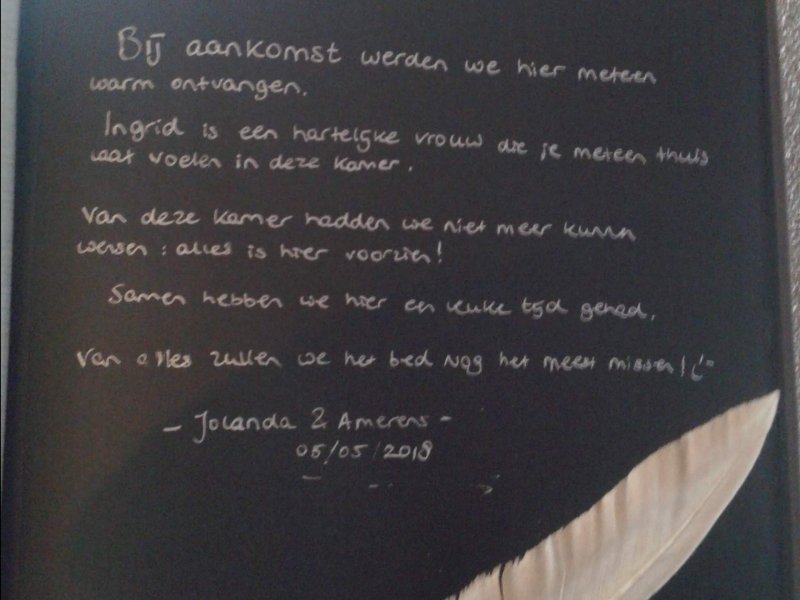 Bij aankomst werden we hier meteen
warm ontvangen.
Ingrid is een hartelijke vrouw die je meteen thuis
laat voelen in deze kamer.
Van deze kamer hadden we niet meer kunnen
wensen : alles is hier voorzien!
Samen hebben we hier een leuke tijd gehad.
Van alles zullen we het bed nog het meest missen!
- Jolanda & Amerens -
05/05/2018